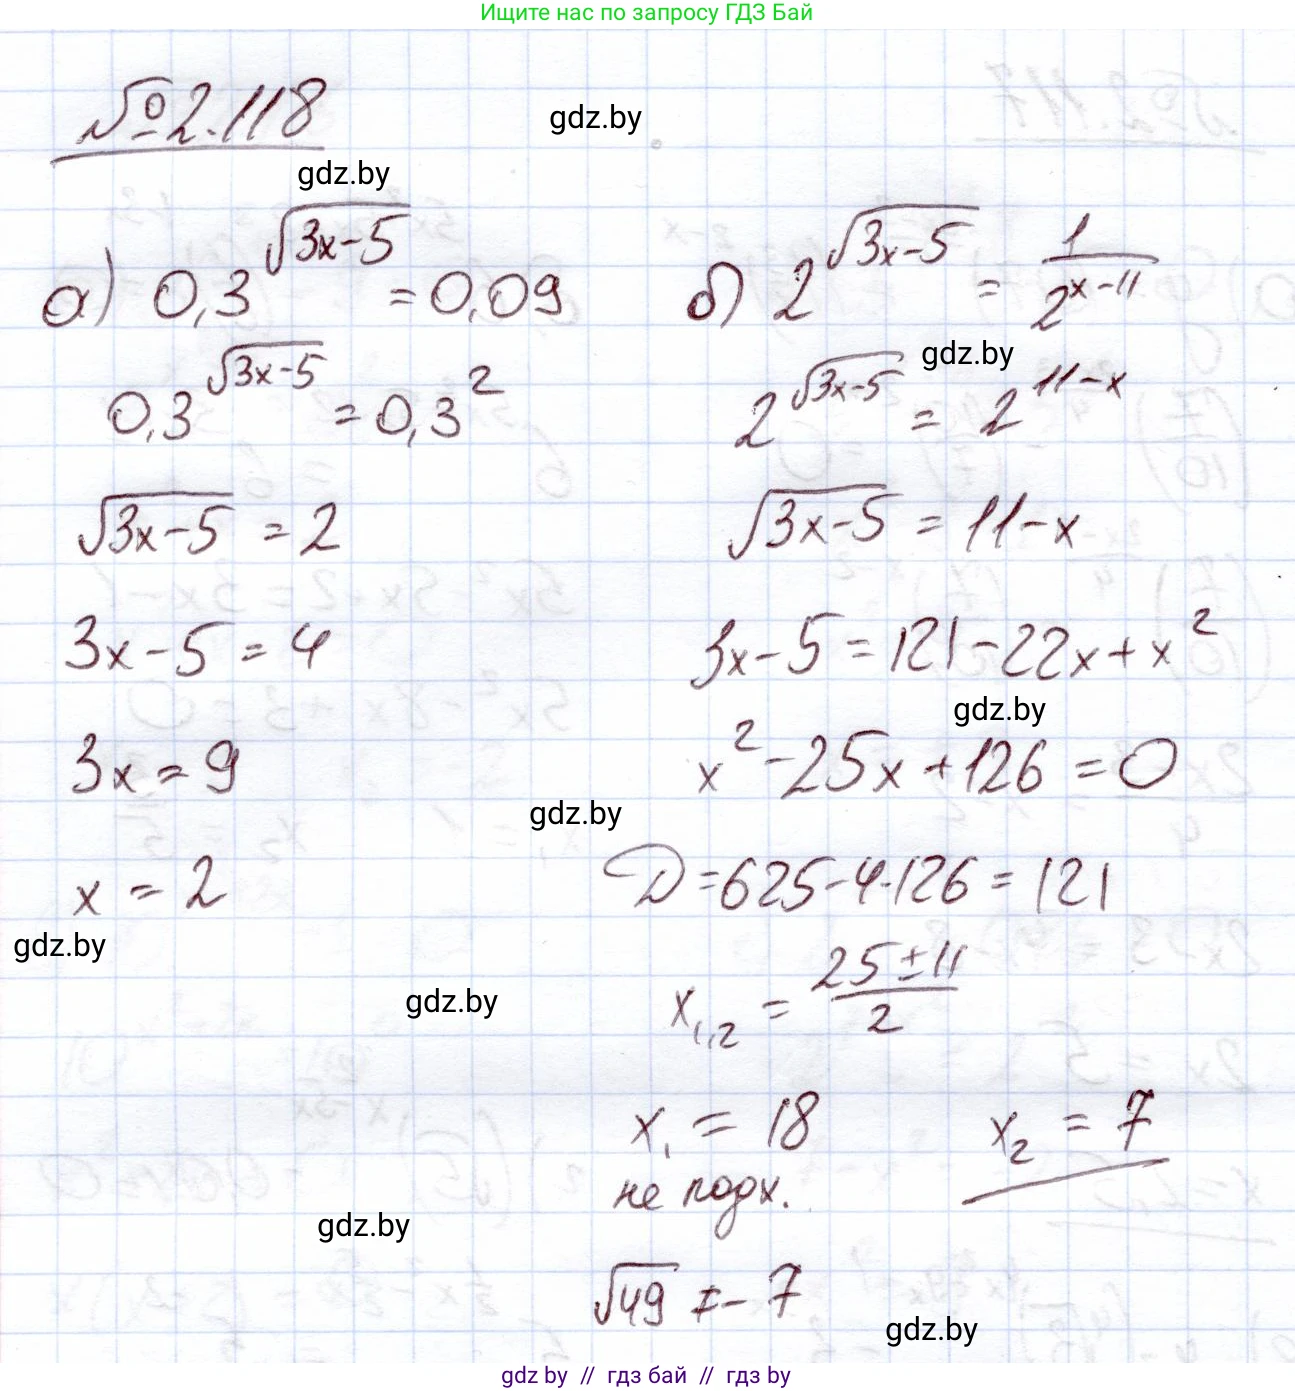 Ищите нас по запросу ГДЗ Бай
№2.118
gdz.by
gdz.by
а) 0,3^√(3x-5) = 0,09
0,3^√(3x-5) = 0,3^2
√(3x-5) = 2
3x - 5 = 4
3x = 9
x = 2
gdz.by
gdz.by
gdz.by
б) 2^√(3x-5) = 1/2^(x-11)
gdz.by
2^√(3x-5) = 2^(11-x)
√(3x-5) = 11-x
3x-5 = 121-22x+x^2
gdz.by
x^2-25x+126=0
D=625-4·126=121
x1,2 = (25±11)/2
x1 = 18
не подх.
x2 = 7
gdz.by
√49 ≠ -7
gdz.by
gdz by // гдз бай // гдз by